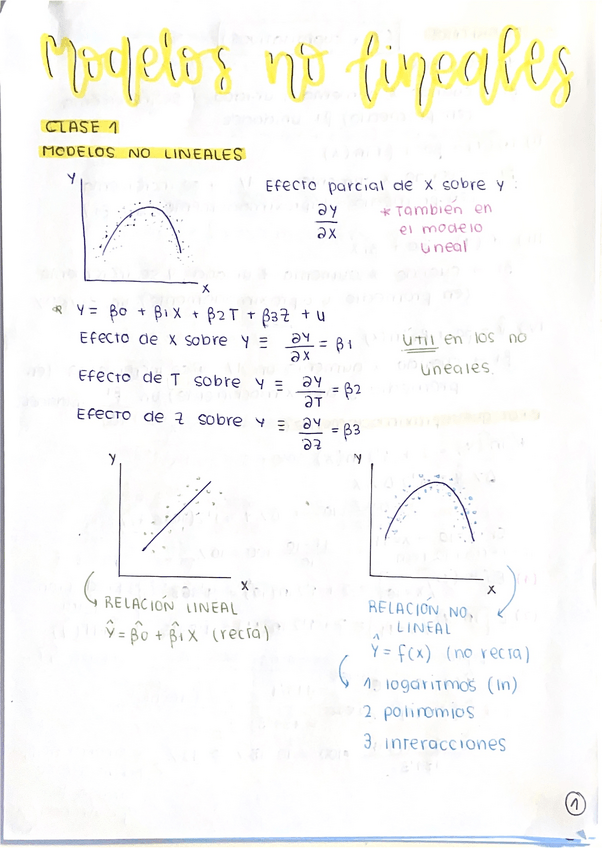 Modelos no lineales
CLASE 1
MODELOS NO LINEALES
Y
X
Efecto parcial de X sobre Y:
∂Y
∂X
* También en
el modelo
lineal
* Y = β0 + β1X + β2T + β3Z + u
Efecto de X sobre Y ≡ ∂Y/∂X = β1
Efecto de T sobre Y ≡ ∂Y/∂T = β2
Efecto de Z sobre Y ≡ ∂Y/∂Z = β3
útil en los no
lineales.
Y
X
RELACIÓN LINEAL
Ŷ = β̂0 + β̂1X (recta)
Y
X
RELACIÓN NO
LINEAL
Ŷ = f(x) (no recta)
1. logaritmos (ln)
2. polinomios
3. interacciones
1